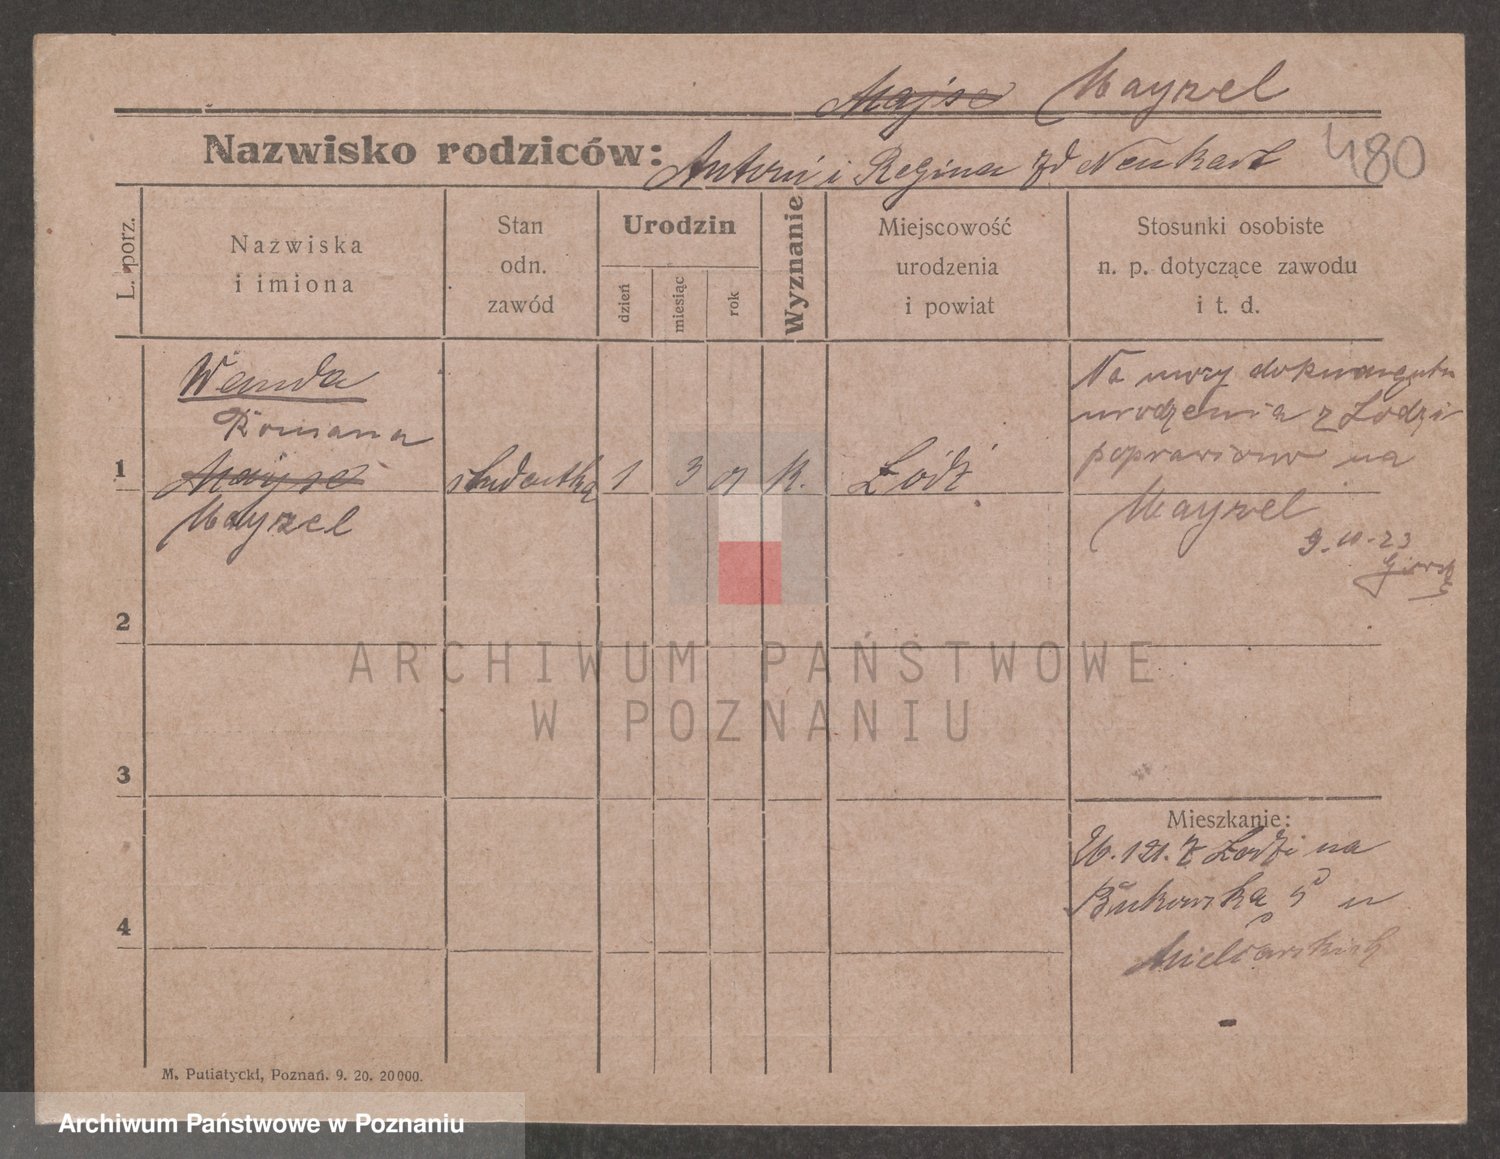 Majse Mayzel
Nazwisko rodziców: Antoni i Regina zd Neukart 480
L. porz.
Nazwiska
i imiona
Stan
odn.
zawód
Urodzin
dzień
miesiąc
rok
Wyznanie
Miejscowość
urodzenia
i powiat
Stosunki osobiste
n. p. dotyczące zawodu
i t. d.
Wanda
Romana
1 Majse studentka 1 3 01 K. Łódź
Mayzel
Na mocy dokumentu
urodzenia z Łodzi
poprawiono na
Mayzel
9.10.23
2
3
4
Mieszkanie:
26.121. z Łodzi na
Bukowską 5 u
Mielcarskich
M. Putiatycki, Poznań. 9. 20. 20000.
ARCHIWUM PAŃSTWOWE
W POZNANIU
Archiwum Państwowe w Poznaniu